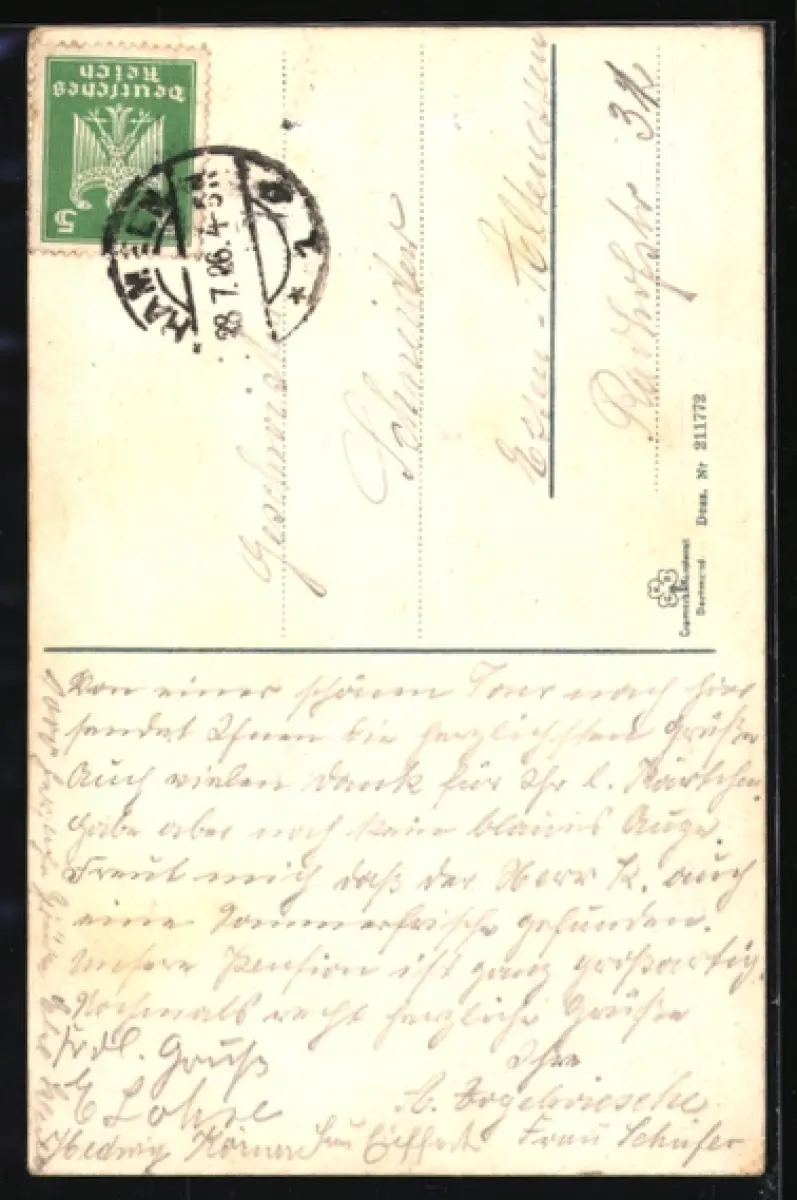 Deutsches
Reich
5
HAMELN
28.7.26.4-5N
* 1 e
Geschwister
Schneider
Essen-Altenessen
Radhofstr 32
Cramers Kunstanstalt
Dortmund
Dess. Nr 211772
Von einer schönen Tour nach hier
sendet Ihnen die herzlichsten Grüße
Auch vielen Dank für Ihr l. Kärtchen,
habe aber noch kein blaues Auge.
Freut mich daß der Herr K. auch
eine Sommerfrische gefunden.
Unsere Pension ist ganz großartig.
Nochmals recht herzliche Grüße
Ihre
A.
Frdl. Gruß
E Lohse
Hedwig Körner Frau Schäfer
herzliche Grüße